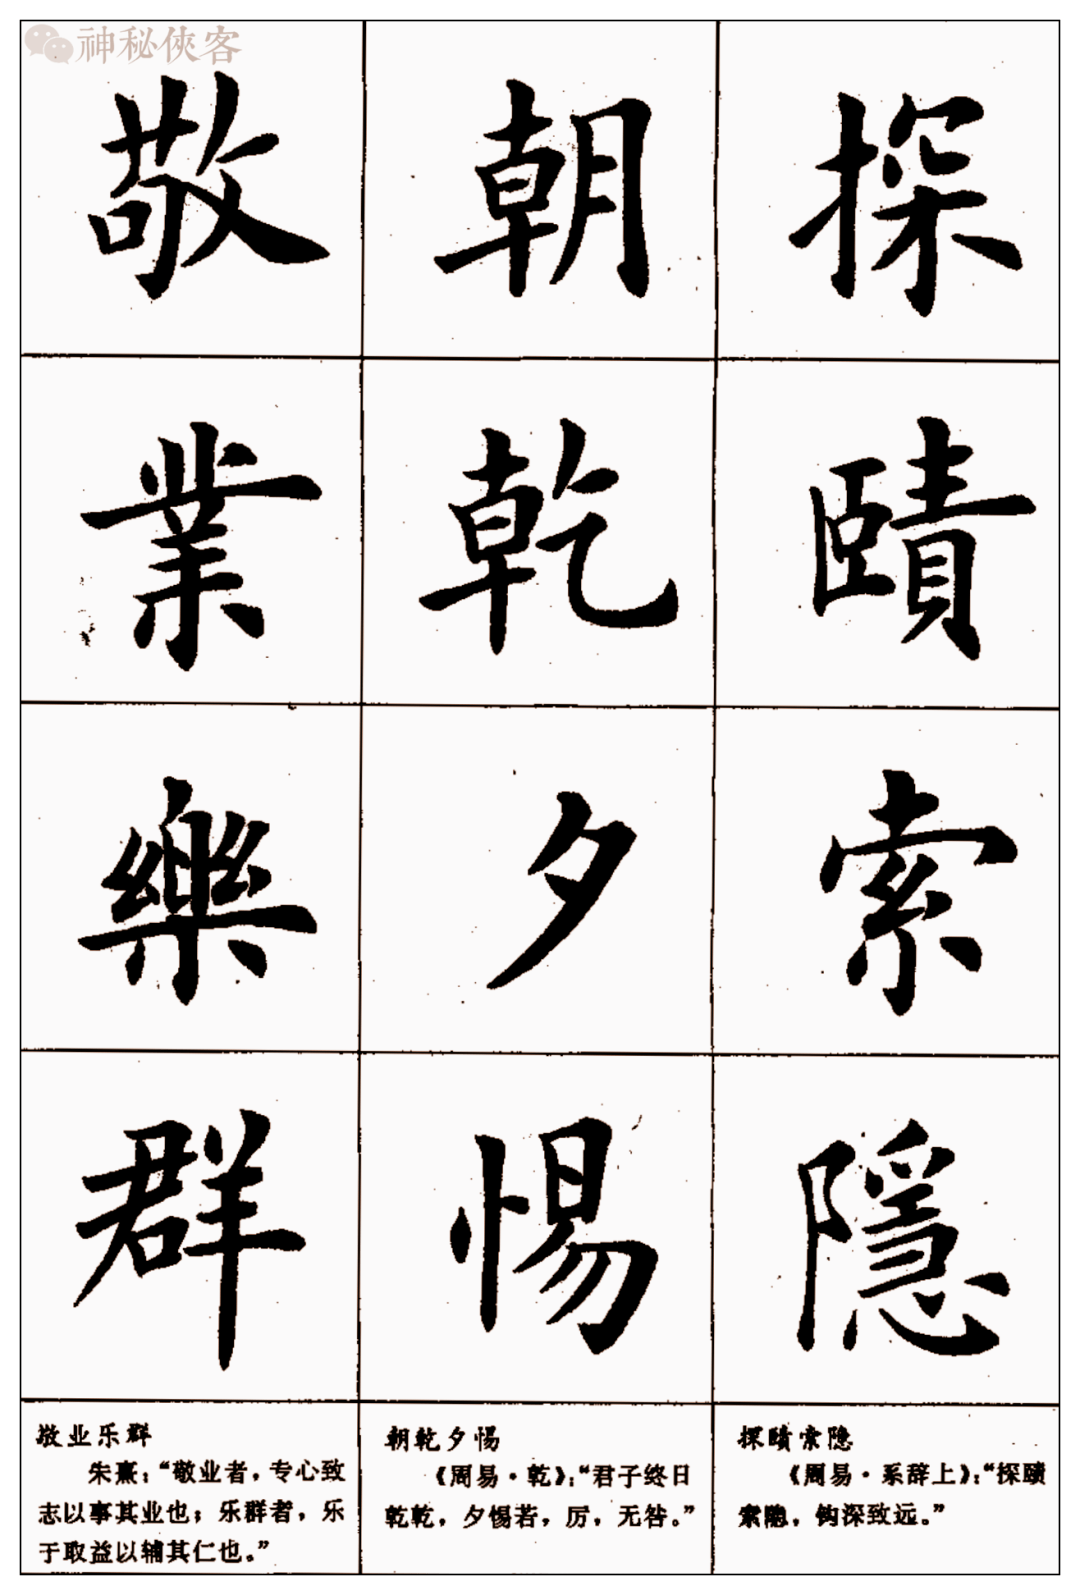 神秘俠客
探賾索隱
朝乾夕惕
敬業樂群
探赜索隐
《周易·系辞上》：“探赜
索隐，钩深致远。”
朝乾夕惕
《周易·乾》：“君子终日
乾乾，夕惕若，厉，无咎。”
敬业乐群
朱熹：“敬业者，专心致
志以事其业也；乐群者，乐
于取益以辅其仁也。”